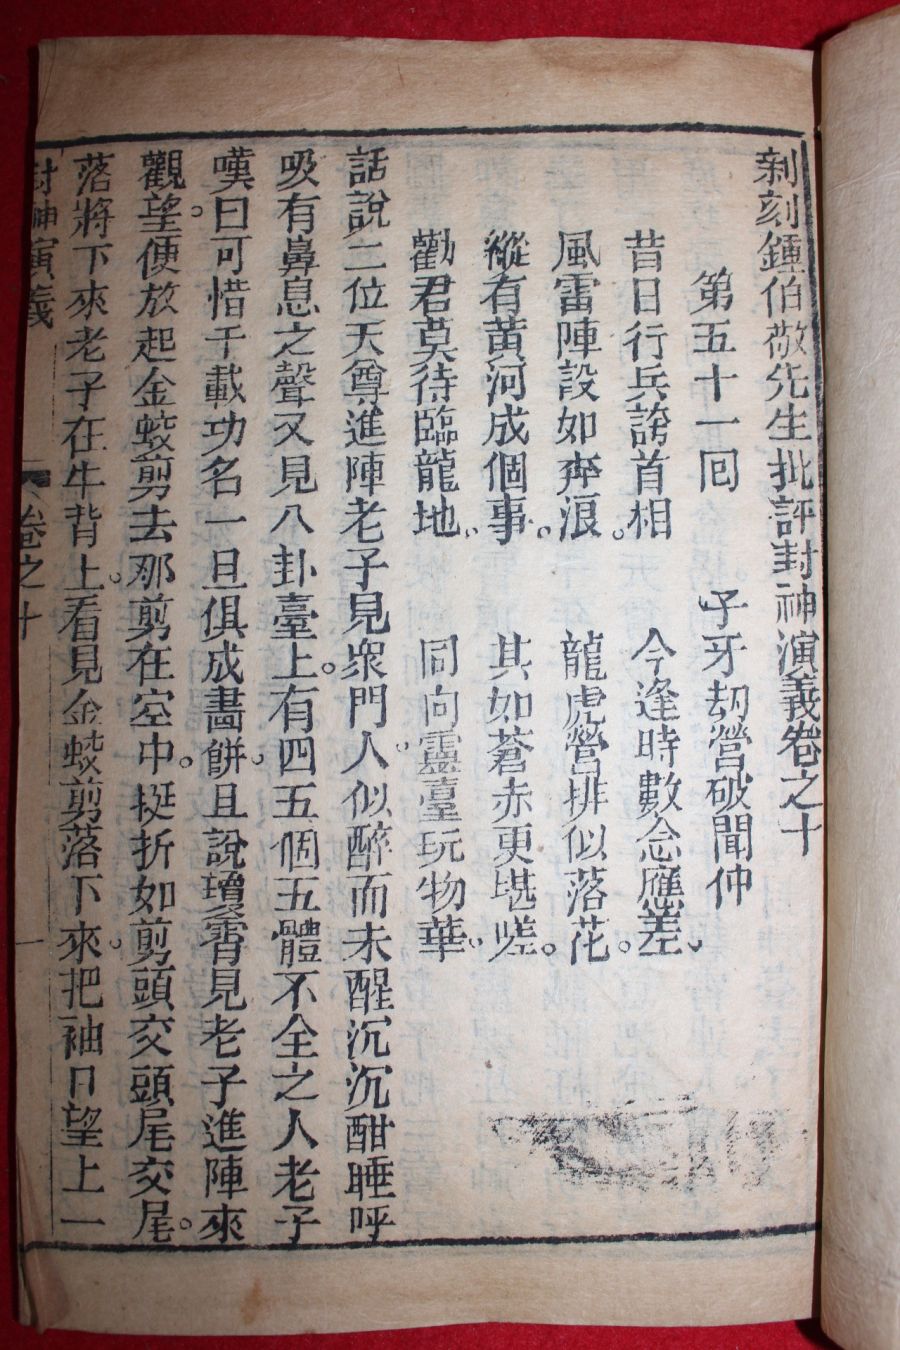 新刻鍾伯敬先生批評封神演義卷之十
第五十一回 子牙刼營破聞仲
昔日行兵誇首相 今逢時數念應差
風雷陣設如奔浪 龍虎營排似落花
縱有黃河成個事 其如蒼赤更堪嗟
勸君莫待臨龍地 同向靈臺玩物華
話說二位天尊進陣老子見衆門人似醉而未醒沉沉酣睡呼
吸有鼻息之聲又見八卦臺上有四五個五體不全之人老子
嘆曰可惜千載功名一旦俱成畫餅且說瓊霄見老子進陣來
觀望便放起金蛟剪去那剪在空中挺折如剪頭交頭尾交尾
落將下來老子在牛背上看見金蛟剪落下來把袖口望上一
封神演義 卷之十 一